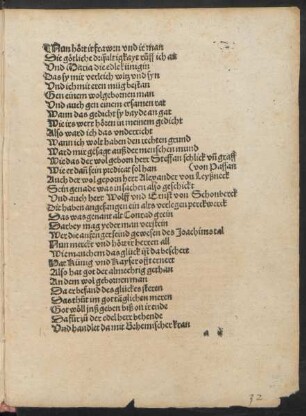 Nun hört ir frawen vnd ir man
Die götliche driualtigkayt rüff ich an
Vnd Maria die edle künigin
Das sy mir verleich witz vnd syn
Vnd ich mit eren müg bestan
Gen einem wolgebornen man
Vnd auch gen einem ersamen rat
Wann das gedicht sy bayde an gat
Wie irs wert hören in meinem gedicht
Also ward ich das vnderricht
Wann ich wolt haben den rechten grund
Ward mir gesagt auß der menschen mund
Wie das der wolgeborn herr Steffan schlick vnd graff
Wie er dañ sein predicat sol han (von Passan
Auch der wolgeporn herr Alexander von Leyßneck
Sein genade was in sachen also geschickt
Vnd auch herr Wolff vnd Ernst von Schonberck
Die haben angefangen ein altes verlegen perckwerck
Das was genant alt Conrad grein
Darbey mag yeder man versteen
Wer die anfenger seind gewesen des Joachimstal
Nun merckt vnd hört ir herren all
Wie manchem das glück ist da beschert
Hat Künig vnd Kayser offt ernert
Also hat got der almechtig gethan
An dem wolgebornen man
Da er befand des glückes steren
Das thüt im got täglichen meren
Got wöll jms geben biß on ir ende
Dafür ist der edel herr behende
Vnd handlet da mit Behemischer kran
a
72